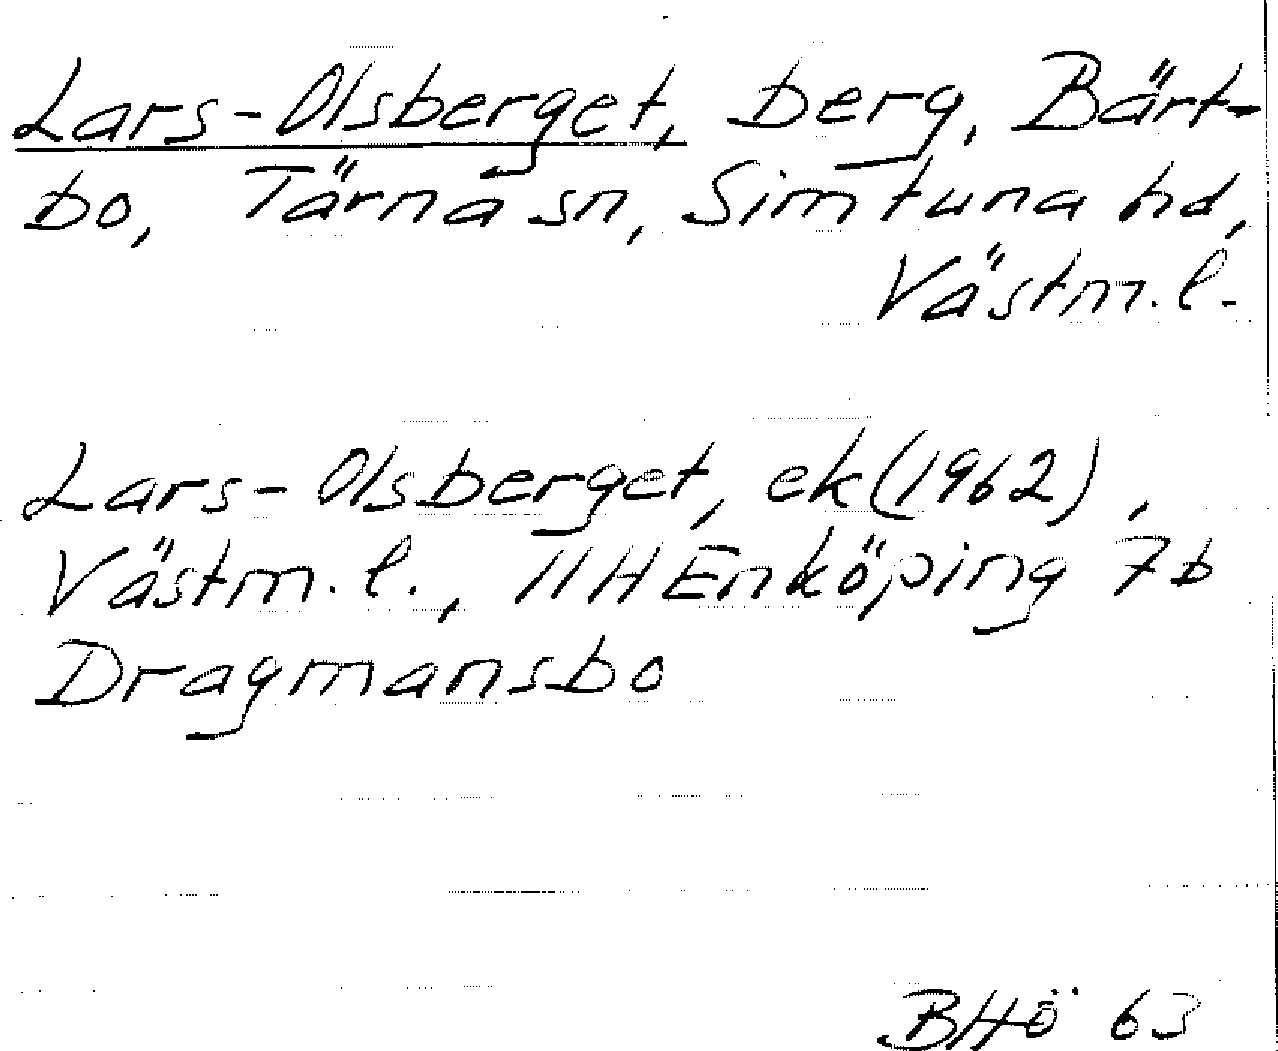 Lars-Olsberget, berg, Bärt-
bo, Tärna sn, Simtuna hd,
Västm.l.
Lars-Olsberget, ek (1962),
Västm.l., 11H Enköping 7b
Dragmansbo
BHÖ 63